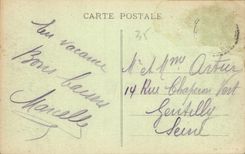 CARTE POSTALE
En vacance
Bons baisers
Marcelle
Mr et Mme Artur
14 Rue Chaperon Vert
Gentilly
Seine